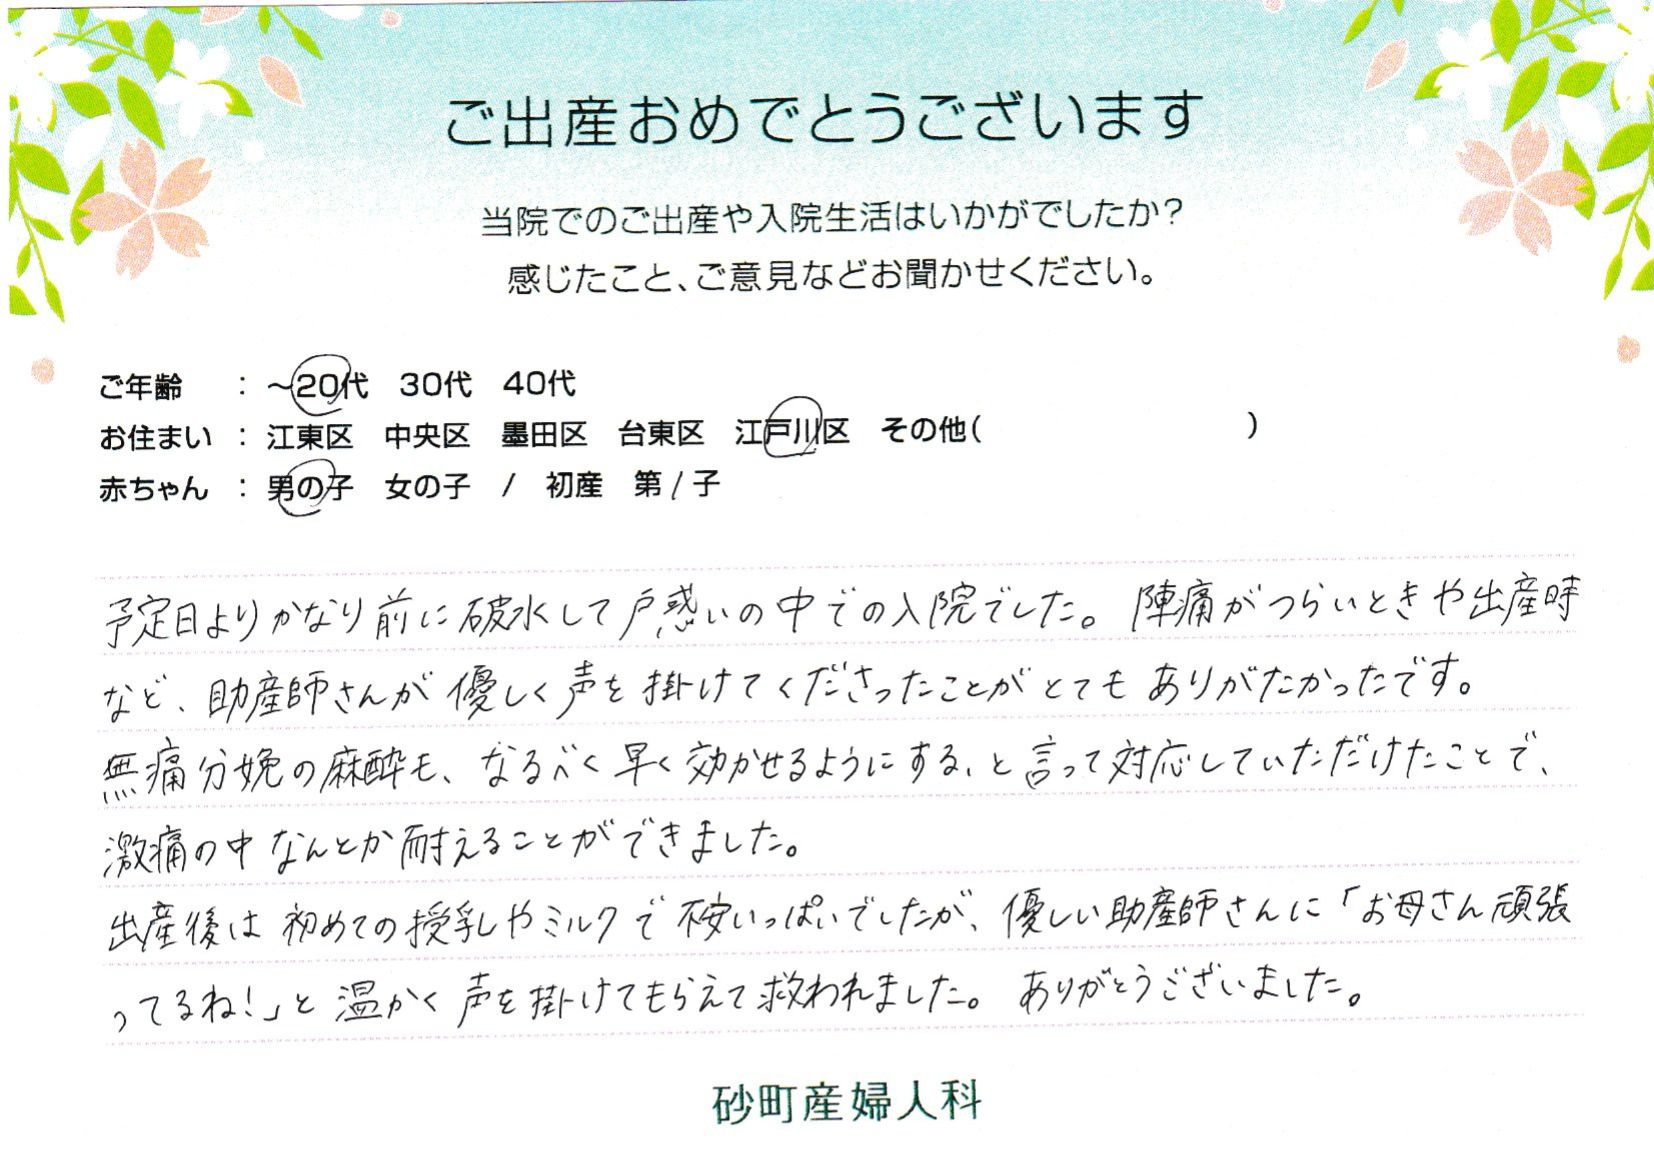 ご出産おめでとうございます
当院でのご出産や入院生活はいかがでしたか?
感じたこと、ご意見などお聞かせください。
ご年齢 : ~20代 30代 40代
お住まい : 江東区 中央区 墨田区 台東区 江戸川区 その他( )
赤ちゃん : 男の子 女の子 / 初産 第1子
予定日よりかなり前に破水して戸惑いの中での入院でした。陣痛がつらいときや出産時
など、助産師さんが優しく声を掛けてくださったことがとてもありがたかったです。
無痛分娩の麻酔も、なるべく早く効かせるようにする、と言って対応していただけたことで、
激痛の中なんとか耐えることができました。
出産後は初めての授乳やミルクで不安いっぱいでしたが、優しい助産師さんに「お母さん頑張
ってるね!」と温かく声を掛けてもらえて救われました。ありがとうございました。
砂町産婦人科